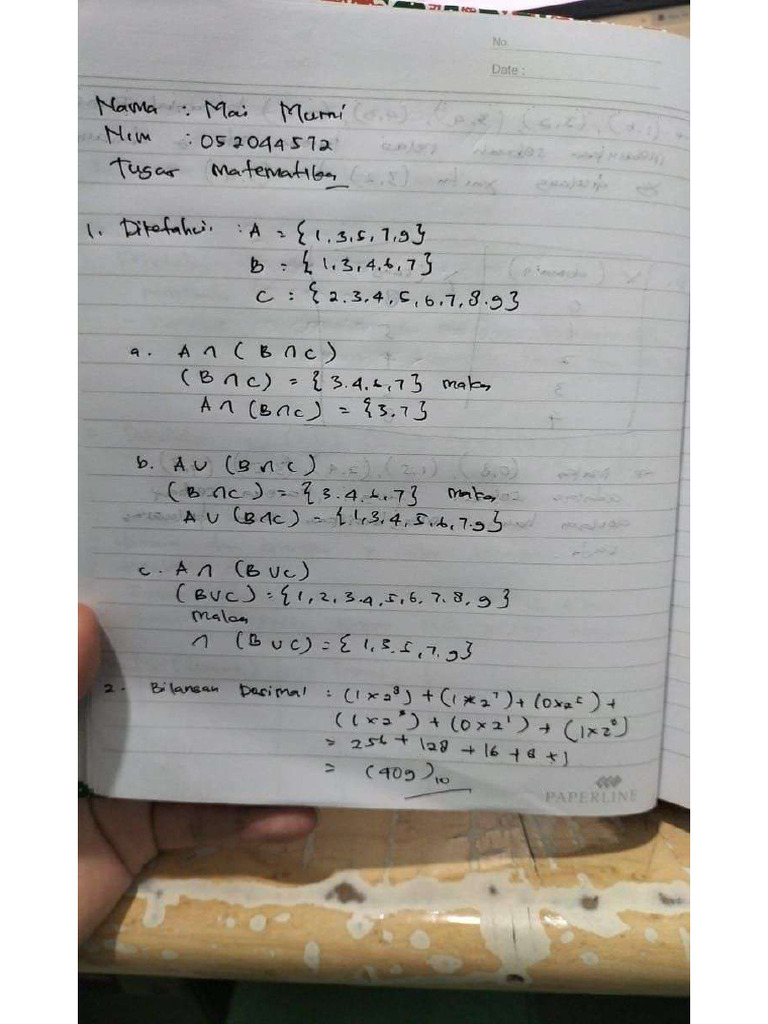 No.
Date :
Nama : Mai Murni
Nim : 052044572
Tugas Matematika
1. Diketahui : A = {1,3,5,7,9}
B = {1,3,4,6,7}
C = {2.3.4,5,6.7,8.9}
a. A ∩ (B ∩ C)
(B ∩ C) = {3.4.6,7} maka
A ∩ (B ∩ C) = {3.7}
b. A ∪ (B ∩ C)
(B ∩ C) = {3.4.6,7} maka
A ∪ (B ∩ C) = {1,3,4,5,6,7.9}
c. A ∩ (B ∪ C)
(B ∪ C) = {1,2,3.4,5,6,7.8,9}
maka
∩ (B ∪ C) = {1,3,5,7.9}
2. Bilangan Desimal : (1×2⁸) + (1×2⁷) + (0×2⁶) +
(1×2³) + (0×2¹) + (1×2⁰)
= 256 + 128 + 16 + 8 + 1
= (409)₁₀
PAPERLINE